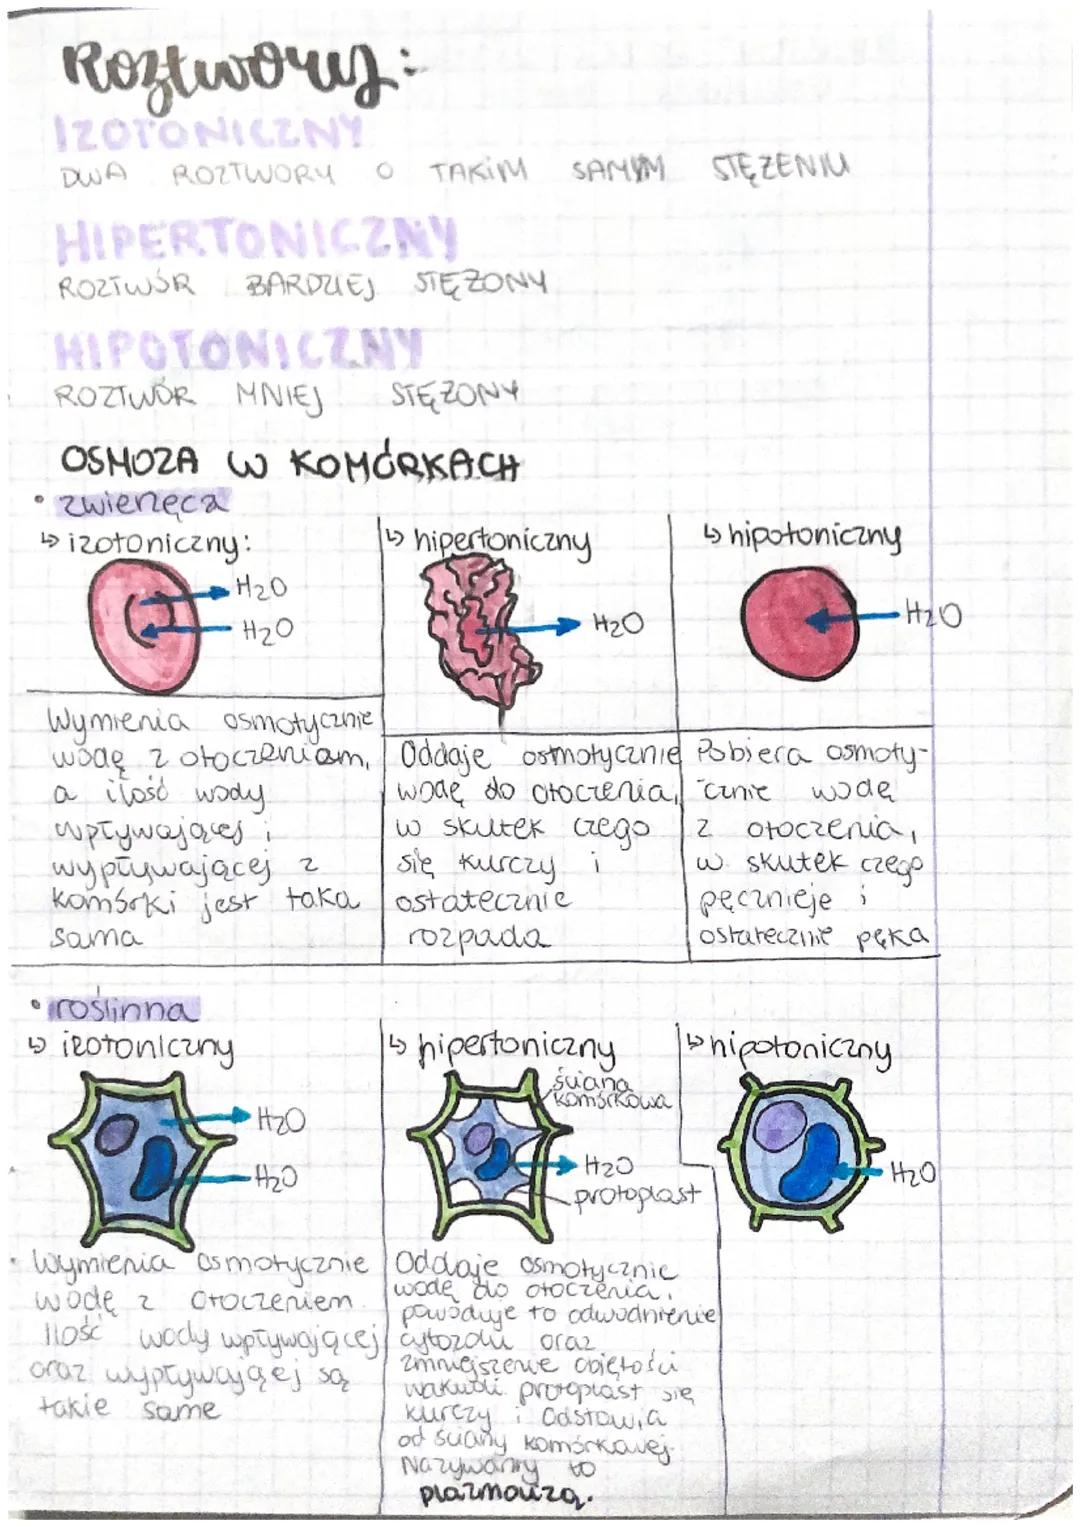 Roztwory:
IZOTONICZNY
DWA ROZTWORY O TAKIM SAMYM STĘŻENIU
HIPERTONICZNY
ROZTWÓR BARDZIEJ STĘŻONY
HIPOTONICZNY
ROZTWÓR MNIEJ STĘŻONY
OSMOZA W KOMÓRKACH
• zwierzęca
↳ izotoniczny:
H₂O
H₂O
Wymienia osmotycznie
wodę z otoczeniam,
a ilość wody
wpływającej i
wypływającej z
komórki jest taka
sama
↳ hipertoniczny
H₂O
Oddaje ostmotycznie
wodę do otoczenia,
w skutek czego
się kurczy i
ostatecznie
rozpada
↳ hipotoniczny
H₂O
Pobiera osmoty-
cznie wodę
z otoczenia,
w skutek czego
pęcznieje i
ostatecznie pęka
• roślinna
↳ izotoniczny
H₂O
H₂O
Wymienia osmotycznie
wodę z otoczeniem.
Ilość wody wpływającej
oraz wypływającej są
takie same
↳ hipertoniczny
ściana
komórkowa
H₂O
protoplast
Oddaje osmotycznie
wodę do otoczenia,
powoduje to odwodnienie
cytozolu oraz
zmniejszenie objętości
wakuoli. protoplast się
kurczy i odstawia
od ściany komórkowej.
Nazywamy to
plazmolizą.
↳ hipotoniczny
H₂O